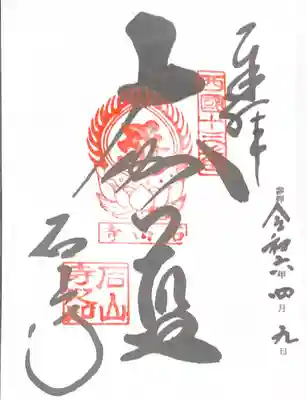 奉拝
西國十三番
令和六年四月九日
大伽藍
石山寺
石山寺